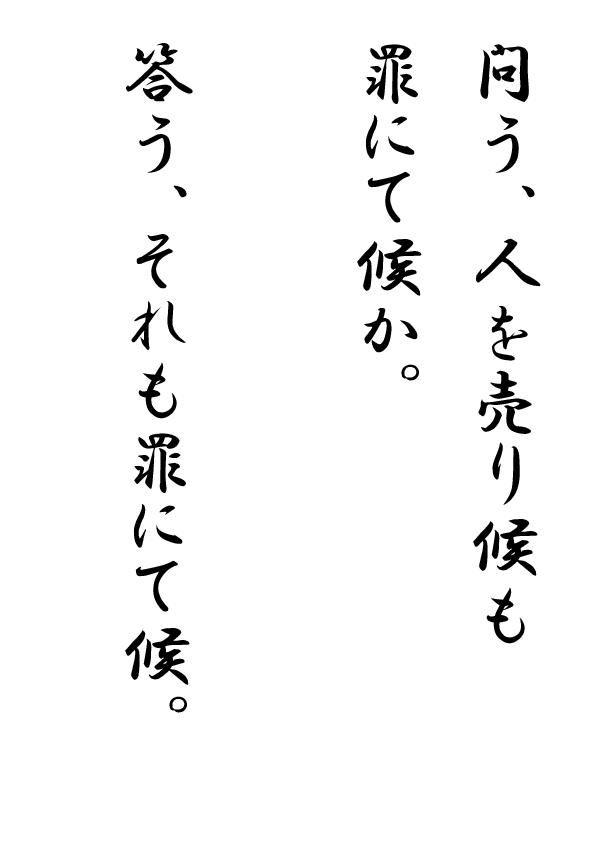 問う、人を売り候も
罪にて候か。
答う、それも罪にて候。